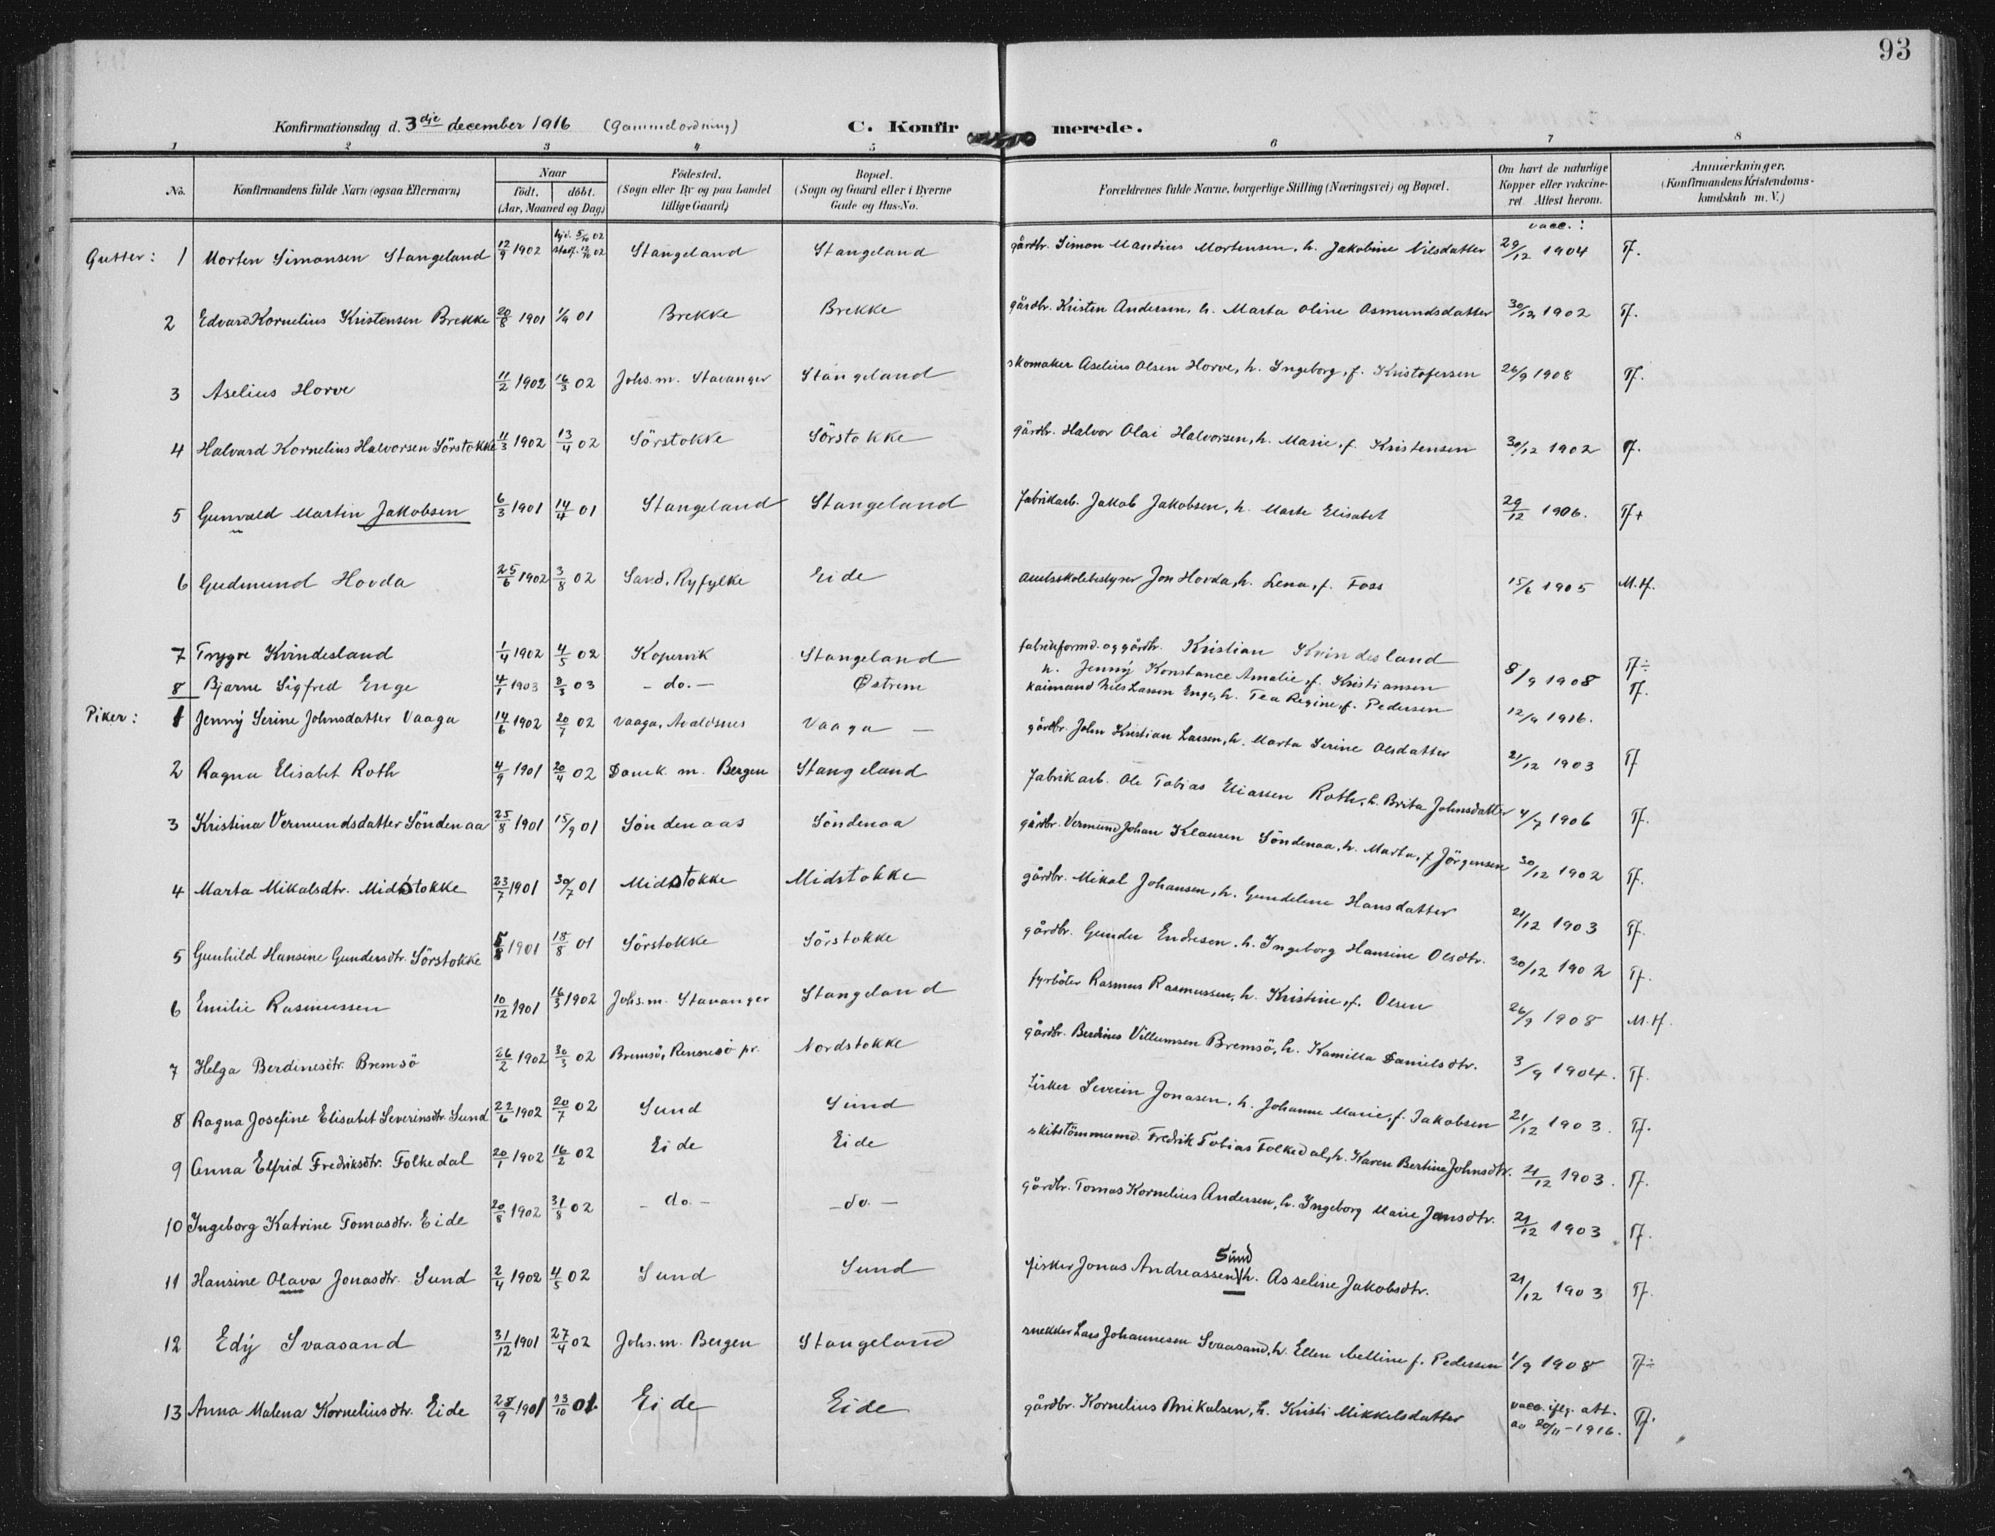 93
Konfirmationsdag d. 3dje december 1916 (Gammel ordning) C. Konfirmerede.
1 2 3 4 5 6 7 8
No. Konfirmandens fulde Navn (ogsaa Efternavn) Naar födt. döbt. (Aar, Maaned og Dag) Födested. (Sogn eller By og paa Landet tillige Gaard) Bopæl. (Sogn og Gaard eller i Byerne Gade og Hus-No. Forældrenes fulde Navne, borgerlige Stilling (Næringsvei) og Bopæl. Om havt de naturlige Kopper eller vakcineret. Attest herom. Anmærkninger, (Konfirmandens Kristendomskundskab m. V.)
vacc.:
Gutter: 1 Morten Simonsen Stangeland 12/9 1902 hjd. 5/10 02 stadf. 12/10 02 Stangeland Stangeland gårdbr. Simon Mandius Mortensen, h. Jakobine Nilsdatter 29/12 1904 Tf.
2 Edvard Kornelius Kristensen Brekke 20/8 1901 1/9 01 Brekke Brekke gårdbr. Kristen Andersen, h. Marta Oline Asmundsdatter 30/12 1902 Tf.
3 Aselius Horve 11/2 1902 16/3 02 Johs. m. Stavanger Stangeland skomaker Aselius Olsen Horve, h. Ingeborg, f. Kristofersen 26/9 1908 Tf.
4 Halvard Kornelius Halvorsen Sörstokke 11/3 1902 13/4 02 Sörstokke Sörstokke gårdbr. Halvor Olai Halvorsen, h. Marie, f. Kristensen 30/12 1902 Tf.
5 Gunvald Martin Jakobsen 6/3 1901 14/4 01 Stangeland Stangeland fabrikarb. Jakob Jakobsen, h. Marte Elisabet 29/12 1906. Tf+
6 Gudmund Hovda 25/6 1902 3/8 02 Sand, Ryfylke Eide amtsskolebestyrer Jon Hovda, h. Lena, f. Foss 15/6 1905 M.Tf.
7 Trygve Kvindesland 1/4 1902 4/5 02 Kopervik Stangeland fabrikformd. og gårdbr. Kristian Kvindesland
h. Jenny Konstance Amalie, f. Kristiansen 8/9 1908 Tf÷
8 Bjarne Sigfred Enge 4/1 1903 8/3 03 - do. - Østrem kaimand Nils Larsen Enge, h. Tea Regine, f. Pedersen 12/9 1916. Tf.
Piker: 1 Jenny Serine Johnsdatter Vaaga 14/6 1902 20/7 02 Vaaga, Avaldsnes Vaaga - gårdbr. John Kristian Larsen, h. Marta Serine Olsdatter 21/12 1903 Tf
2 Ragna Elisabet Roth 4/9 1901 20/4 02 Domk. m. Bergen Stangeland fabrikarb. Ole Tobias Eliassen Roth, h. Brita Johnsdatter 4/7 1906 Tf.
3 Kristina Vermundsdatter Söndenaa 25/8 1901 15/9 01 Söndenaas Söndenaa gårdbr. Vermund Johan Klausen Söndenaa, h. Marta, f. Jörgensen 30/12 1902 Tf.
4 Marta Mikalsdtr. Midstokke 23/7 1901 30/7 01 Midstokke Midstokke gårdbr. Mikal Johansen, h. Gundeline Hansdatter 21/12 1903 Tf.
5 Gunhild Hansine Gundersdtr. Sörstokke 5/8 1901 18/8 01 Sörstokke Sörstokke gårdbr. Gunder Endresen, h. Ingeborg Hansine Olsdtr. 30/12 1902 Tf.
6 Emilie Rasmussen 10/12 1901 16/3 1902 Johs. m. Stavanger Stangeland fyrböter Rasmus Rasmussen, h. Kristine, f. Olsen 26/9 1908 M.Tf.
7 Helga Berdinesdtr. Bremsö 26/2 1902 30/3 02 Bremsö, Rennesö pr. Nordstokke gårdbr. Berdines Villumsen Bremsö, h. Kamilla Danielsdtr. 3/9 1904. Tf.
8 Ragna Josefine Elisabet Severinsdtr. Sund 22/6 1902 20/7 02 Sund Sund fisker Severin Jonasen, h. Johanne Marie, f. Jakobsen 21/12 1903. Tf.
9 Anna Elfrid Fredriksdtr. Folkedal 20/1 1902 16/2 02 Eide Eide skibstömmermd. Fredrik Tobias Folkedal, h. Karen Bertine Johnsdtr. 21/12 1903. Tf.
10 Ingeborg Katrine Tomasdtr. Eide 20/8 1902 31/8 02 - do. - - do. - gårdbr. Tomas Kornelius Andersen, h. Ingeborg Marie Jensdtr. 21/12 1903. Tf.
11 Hansine Olava Jonasdtr. Sund 2/4 1902 4/5 02 Sund Sund fisker Jonas Andreassen Sund h. Asseline Jakobsdtr. 21/12 1903 Tf.
12 Edy Svaasand 31/12 1901 27/4 02 Johs. m. Bergen Stangeland snekker Lars Johannesen Svaasand, h. Ellen f. Pedersen 1/9 1908 Tf÷
13 Anna Malena Korneliusdtr. Eide 28/9 1901 13/10 01. Eide Eide gårdbr. Kornelius Mikalsen, h. Kristi Mikkelsdatter vacc. iflg. att. av 20/11-1916. Tf.